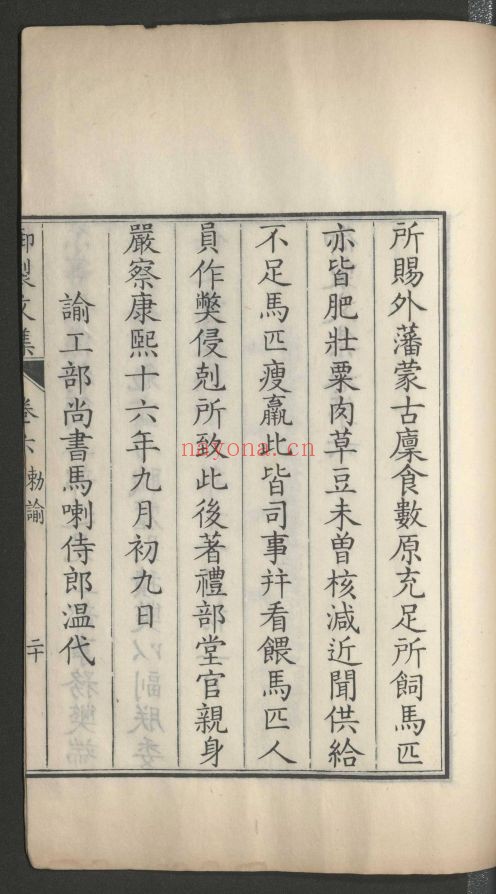 所賜外藩蒙古廩食數原充足所飼馬匹
亦皆肥壯粟肉草豆未曾核減近聞供給
不足馬匹瘦羸此皆司事幷看餵馬匹人
員作獘侵剋所致此後著禮部堂官親身
嚴察康熙十六年九月初九日
諭工部尚書馬喇侍郎溫代
御製文集 卷六 勅諭 二十
nayona.cn